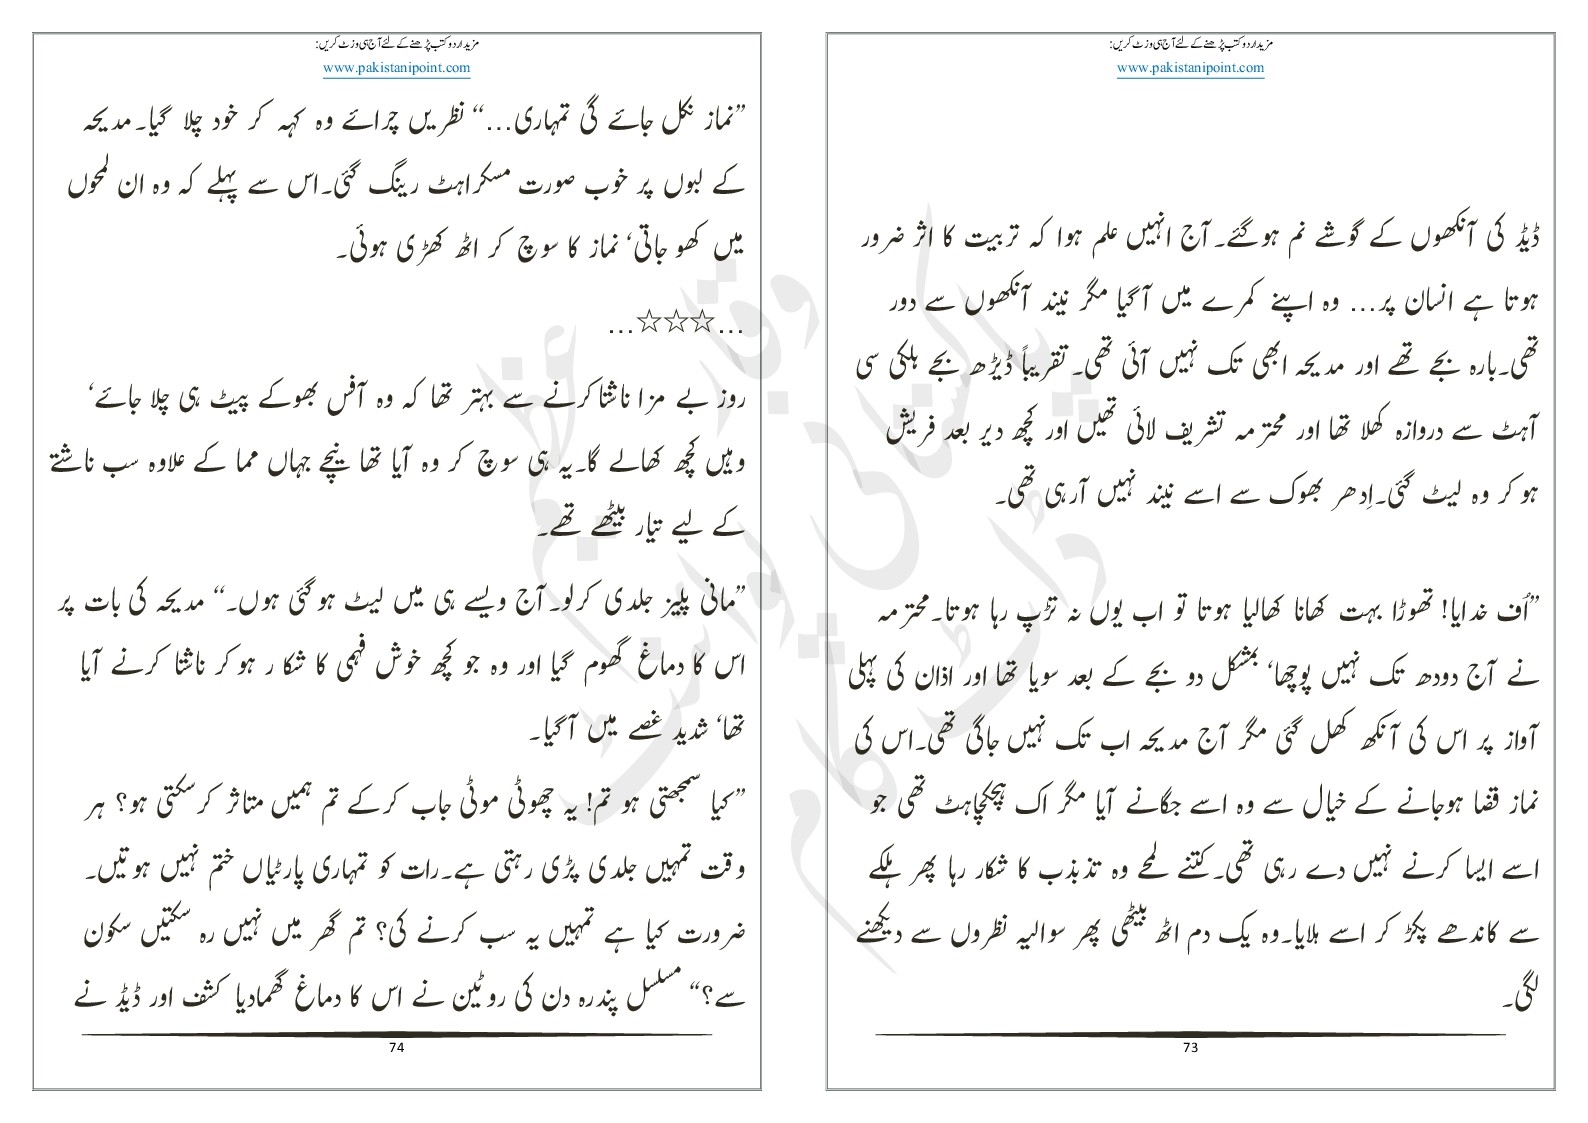 مزید اردو کتب پڑھنے کے لئے آج ہی وزٹ کریں:
www.pakistanipoint.com
ڈیڈ کی آنکھوں کے گوشے نم ہوگئے۔آج انہیں علم ہوا کہ تربیت کا اثر ضرور
ہوتا ہے انسان پر... وہ اپنے کمرے میں آگیا مگر نیند آنکھوں سے دور
تھی۔بارہ بجے تھے اور مدیحہ ابھی تک نہیں آئی تھی۔تقریباً ڈیڑھ بجے ہلکی سی
آہٹ سے دروازہ کھلا تھا اور محترمہ تشریف لائی تھیں اور کچھ دیر بعد فریش
ہوکر وہ لیٹ گئی۔اِدھر بھوک سے اسے نیند نہیں آرہی تھی۔
”اُف خدایا! تھوڑا بہت کھانا کھالیا ہوتا تو اب یوں نہ تڑپ رہا ہوتا۔محترمہ
نے آج دودھ تک نہیں پوچھا‘ بمشکل دو بجے کے بعد سویا تھا اور اذان کی پہلی
آواز پر اس کی آنکھ کھل گئی مگر آج مدیحہ اب تک نہیں جاگی تھی۔اس کی
نماز قضا ہوجانے کے خیال سے وہ اسے جگانے آیا مگر اک ہچکچاہٹ تھی جو
اسے ایسا کرنے نہیں دے رہی تھی۔کتنے لمحے وہ تذبذب کا شکار رہا پھر ہلکے
سے کاندھے پکڑ کر اسے ہلایا۔وہ یک دم اٹھ بیٹھی پھر سوالیہ نظروں سے دیکھنے
لگی۔
73
مزید اردو کتب پڑھنے کے لئے آج ہی وزٹ کریں:
www.pakistanipoint.com
”نماز نکل جائے گی تمہاری...“ نظریں چرائے وہ کہہ کر خود چلا گیا۔مدیحہ
کے لبوں پر خوب صورت مسکراہٹ رینگ گئی۔اس سے پہلے کہ وہ ان لمحوں
میں کھو جاتی‘ نماز کا سوچ کر اٹھ کھڑی ہوئی۔
...☆☆☆...
روز بے مزا ناشتا کرنے سے بہتر تھا کہ وہ آفس بھوکے پیٹ ہی چلا جائے‘
وہیں کچھ کھالے گا۔یہ ہی سوچ کر وہ آیا تھا نیچے جہاں مما کے علاوہ سب ناشتے
کے لیے تیار بیٹھے تھے۔
”مانی پلیز جلدی کرلو۔آج ویسے ہی میں لیٹ ہوگئی ہوں۔“ مدیحہ کی بات پر
اس کا دماغ گھوم گیا اور وہ جو کچھ خوش فہمی کا شکار ہوکر ناشتا کرنے آیا
تھا‘ شدید غصے میں آگیا۔
”کیا سمجھتی ہو تم! یہ چھوٹی موٹی جاب کرکے تم ہمیں متاثر کرسکتی ہو؟ ہر
وقت تمہیں جلدی پڑی رہتی ہے۔رات کو تمہاری پارٹیاں ختم نہیں ہوتیں۔
ضرورت کیا ہے تمہیں یہ سب کرنے کی؟ تم گھر میں نہیں رہ سکتیں سکون
سے؟“ مسلسل پندرہ دن کی روٹین نے اس کا دماغ گھمادیا کشف اور ڈیڈ نے
74
پاکستانی پوائنٹ ڈاٹ کام
وقار عظیم